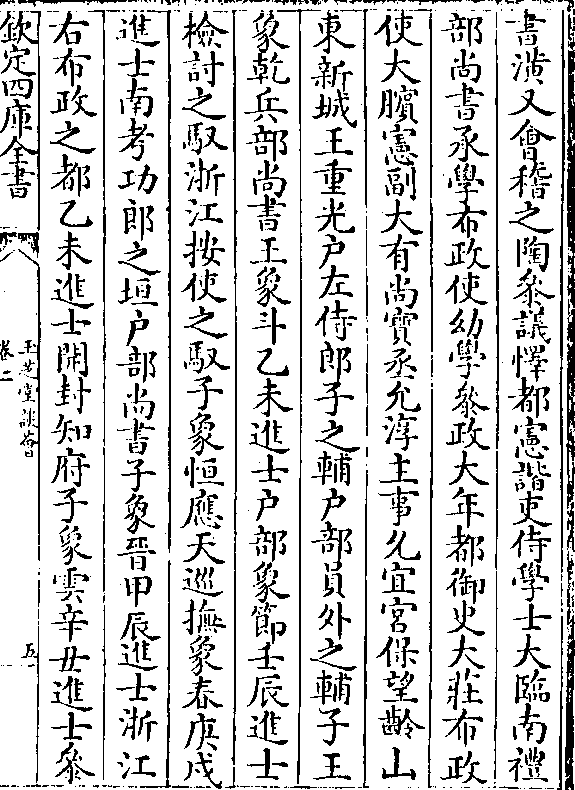 書潢又㑹稽之陶㕘議懌都憲諧吏侍學士大臨南禮
部尚書承學布政使幼學㕘政大年都御史大莊布政
使大臏憲副大有尚寳丞允淳主事允宜宫保望齡山
東新城王重光户左侍郎子之輔户部員外之輔子王
象乾兵部尚書王象斗乙未進士户部象節壬辰進士
檢討之馭浙江按使之馭子象恒應天巡撫象春庚戌
進士南考功郎之垣户部尚書子象晉甲辰進士浙江
右布政之都乙未進士開封知府子象雲辛丑進士㕘
欽定四庫全書
玉芝堂談薈
卷二
五